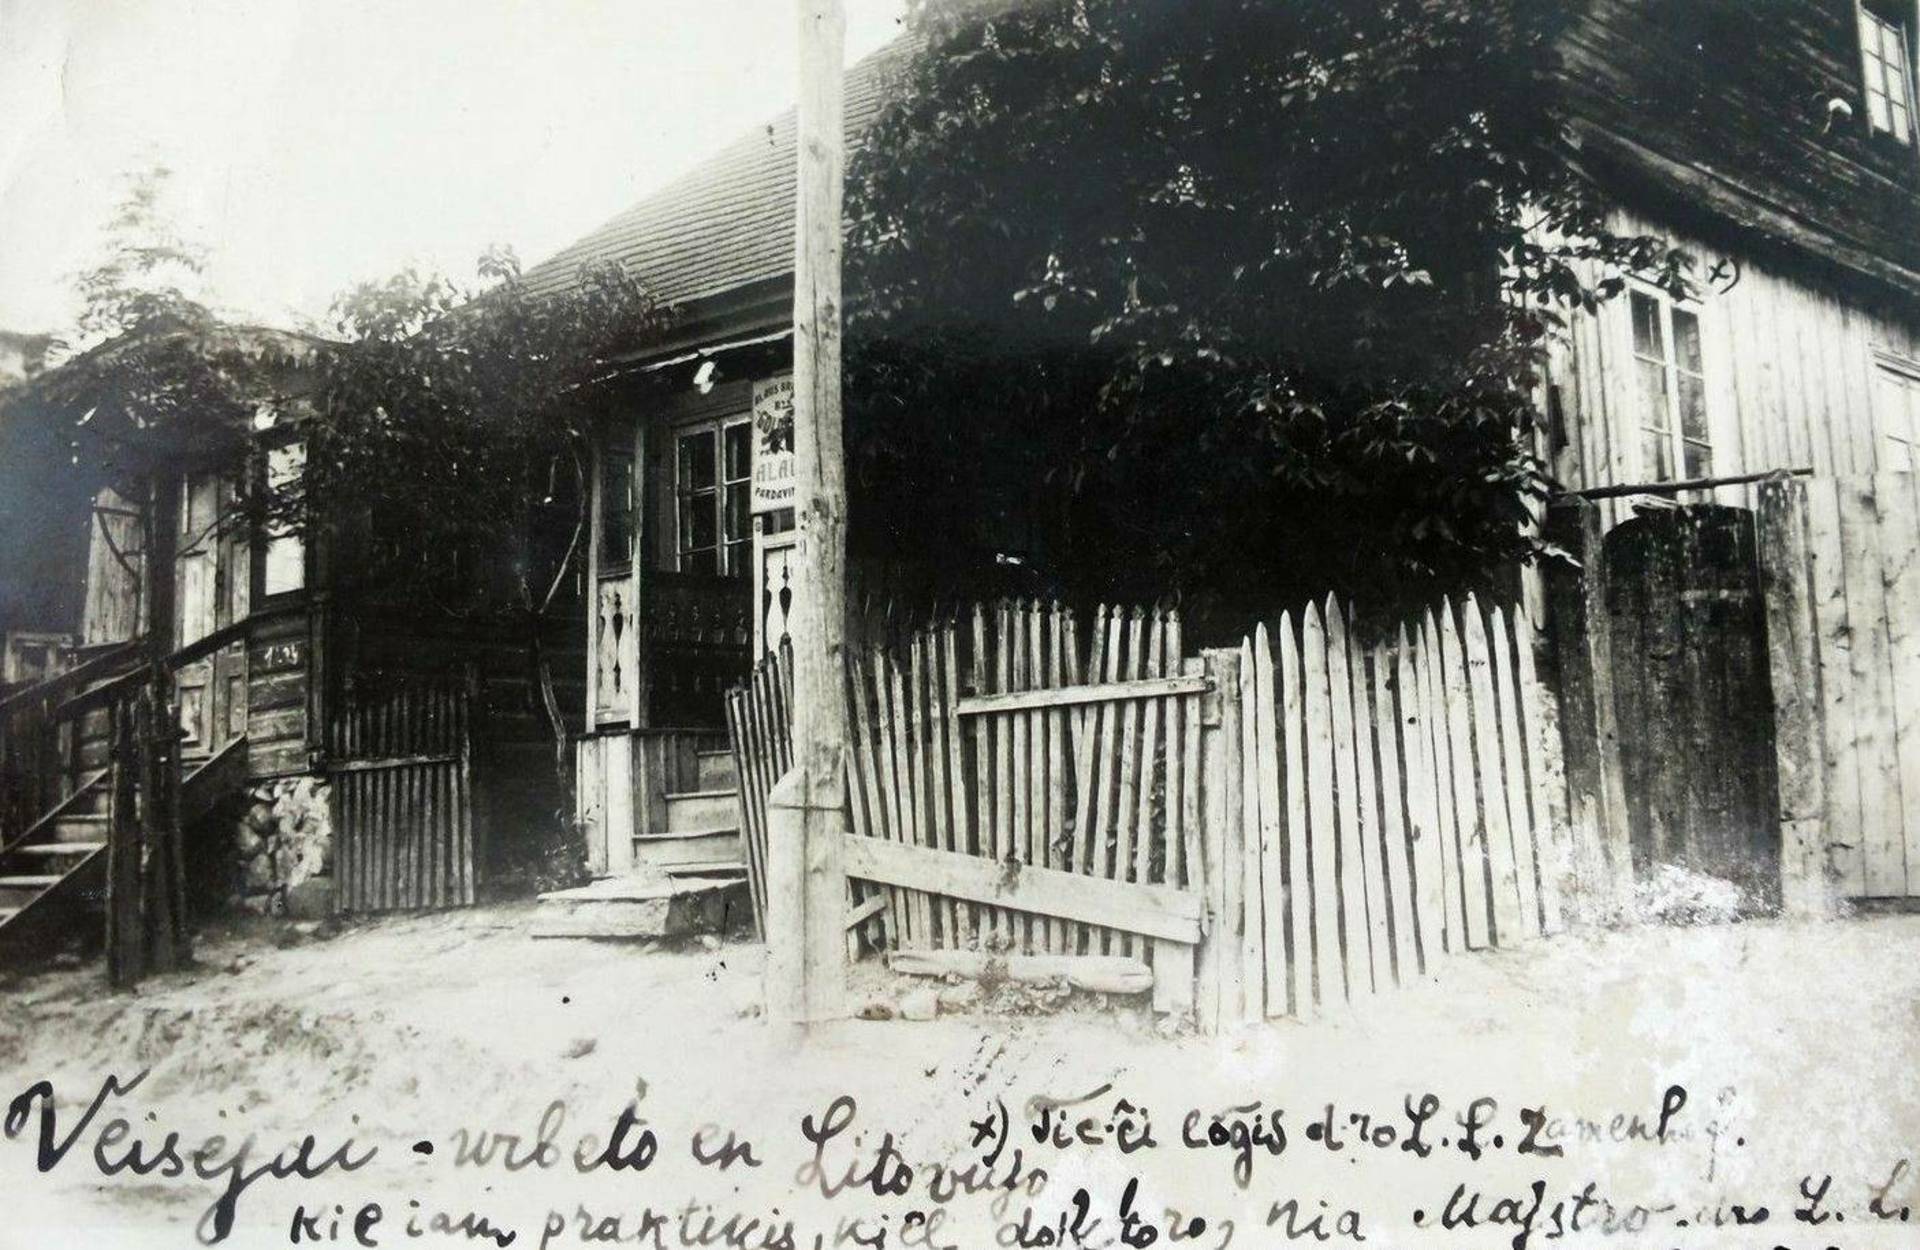 ALAU
PARDAVI
x)
Veisėjai - urbeto en Litovujo
x) Tie-ĉi loĝis d-ro L. L. Zamenhof.
kie iam praktikis, kiel doktoro, nia Majstro d-ro L. L.